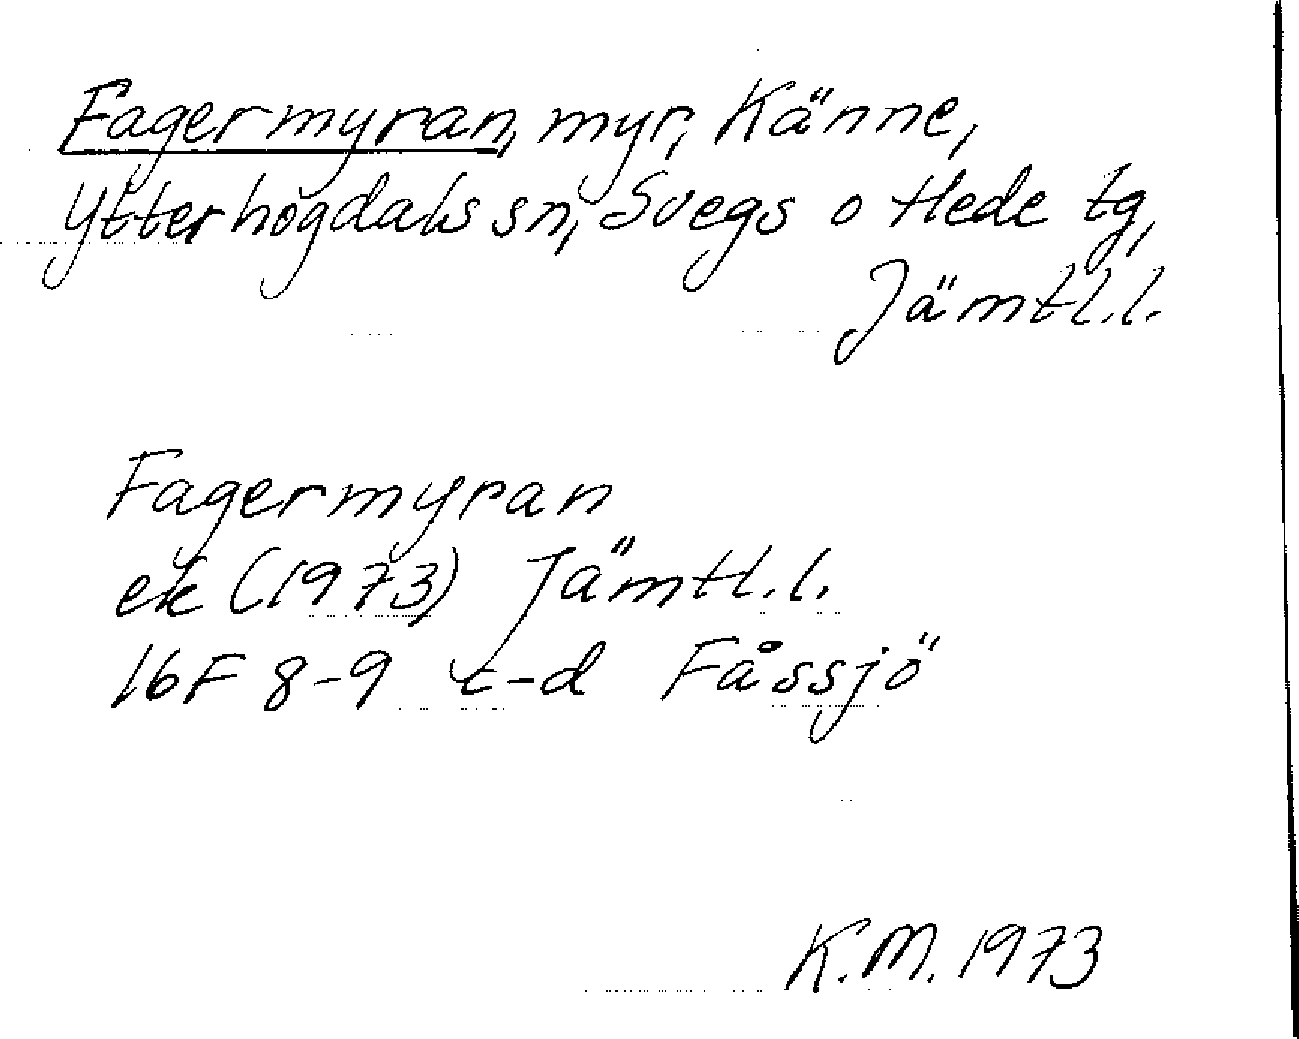 Fagermyran, myr, Känne,
Ytterhögdals sn, Svegs o Hede tg,
Jämtl.l.
Fagermyran
ek (1973) Jämtl.l.
16F 8-9 c-d Fåssjö
K.M. 1973